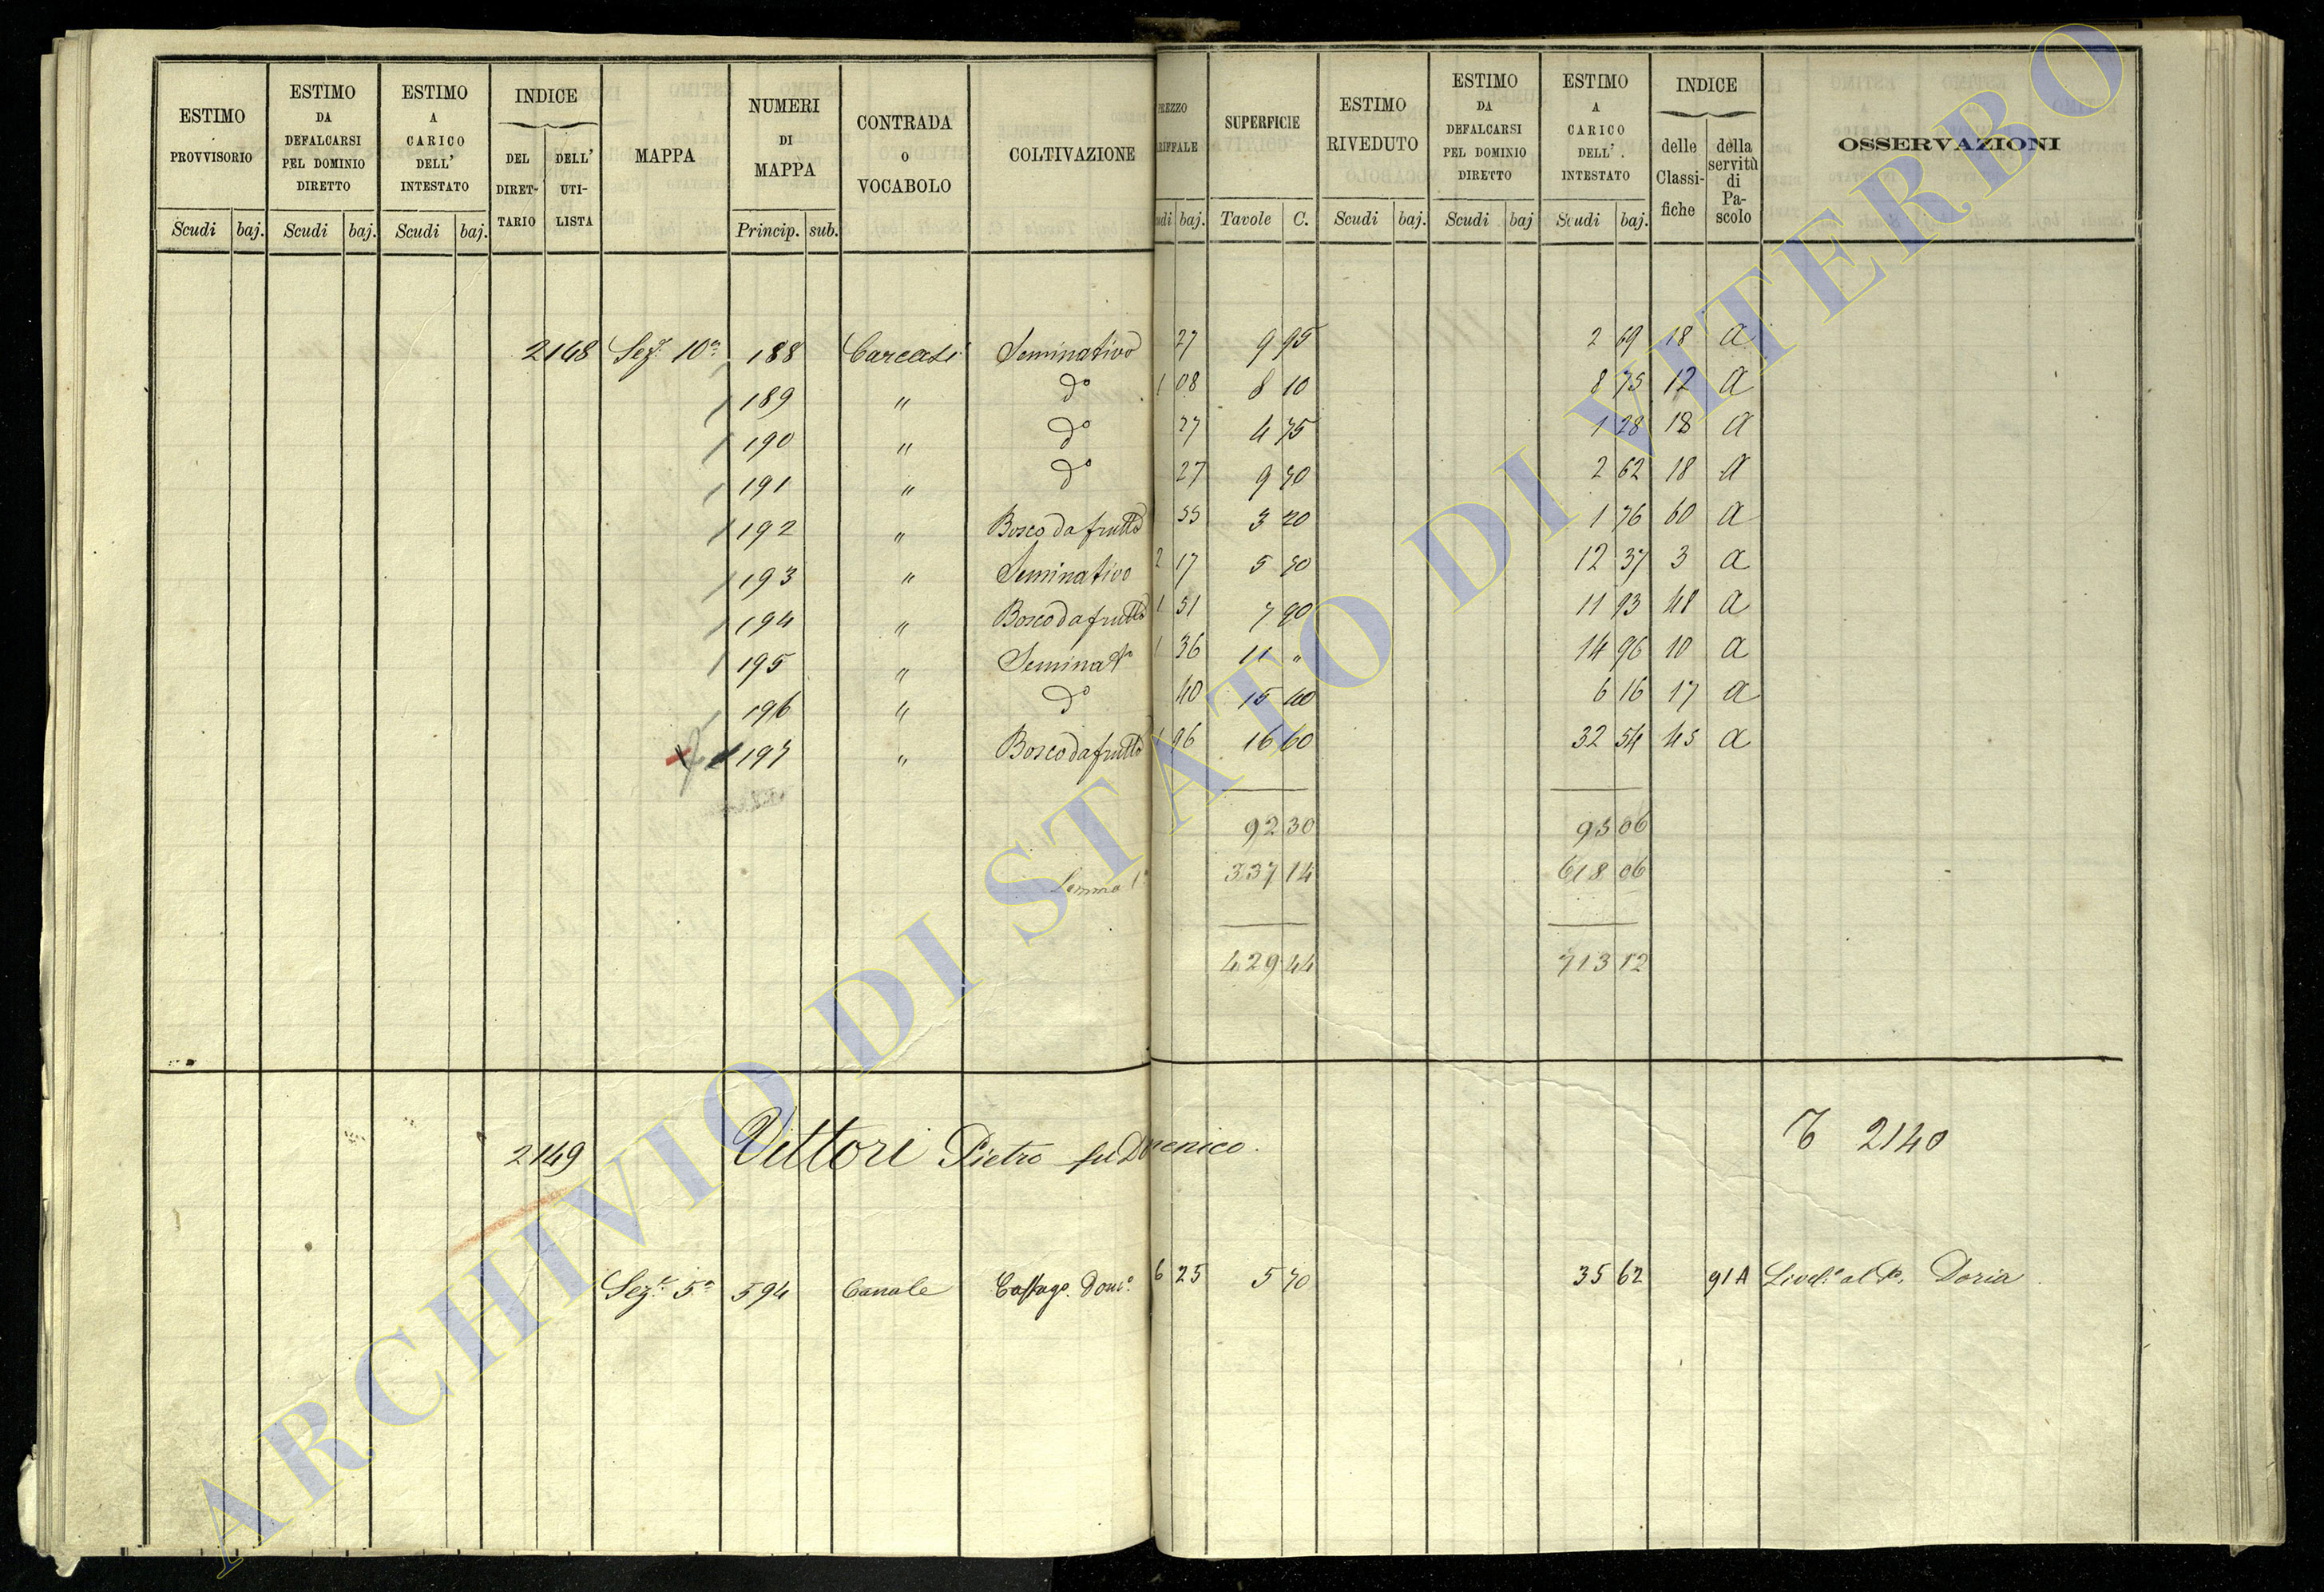 ESTIMO PROVVISORIO
Scudi baj.
ESTIMO DA DEFALCARSI PEL DOMINIO DIRETTO
Scudi baj.
ESTIMO A CARICO DELL' INTESTATO
Scudi baj.
INDICE
DEL DIRET-TARIO
DELL' UTI-LISTA
MAPPA
NUMERI DI MAPPA
Princip. sub.
CONTRADA O VOCABOLO
COLTIVAZIONE
REZZO RIFFALE
udi baj.
SUPERFICIE
Tavole C.
ESTIMO RIVEDUTO
Scudi baj.
ESTIMO DA DEFALCARSI PEL DOMINIO DIRETTO
Scudi baj
ESTIMO A CARICO DELL' INTESTATO
Scudi baj.
INDICE
delle Classi-fiche
della servitù di Pa-scolo
OSSERVAZIONI
2148 Sez.e 10a 188 Carcasi Seminativo 27 9 95 2 69 18 A
189 " do 1 08 8 10 8 75 12 A
190 " do 27 4 75 1 28 18 A
191 " do 27 9 70 2 62 18 A
192 " Bosco da frutto 55 3 20 1 76 60 A
193 " Seminativo 2 17 5 70 12 37 3 A
194 " Bosco da frutto 1 51 7 90 11 93 48 A
195 " Seminato 1 36 11 " 14 96 10 A
196 " do 40 15 40 6 16 17 A
197 " Bosco da frutto 1 96 16 60 32 54 45 A
92 30 95 06
Somma 1a 337 14 618 06
429 44 713 12
2149 Vettori Pietro fu Domenico. 2140
Sez.e 5a 594 Canale Castago. Dom.o 6 25 5 70 35 62 91 A Livel.o al Pe. Doria.
ARCHIVIO DI STATO DI VITERBO